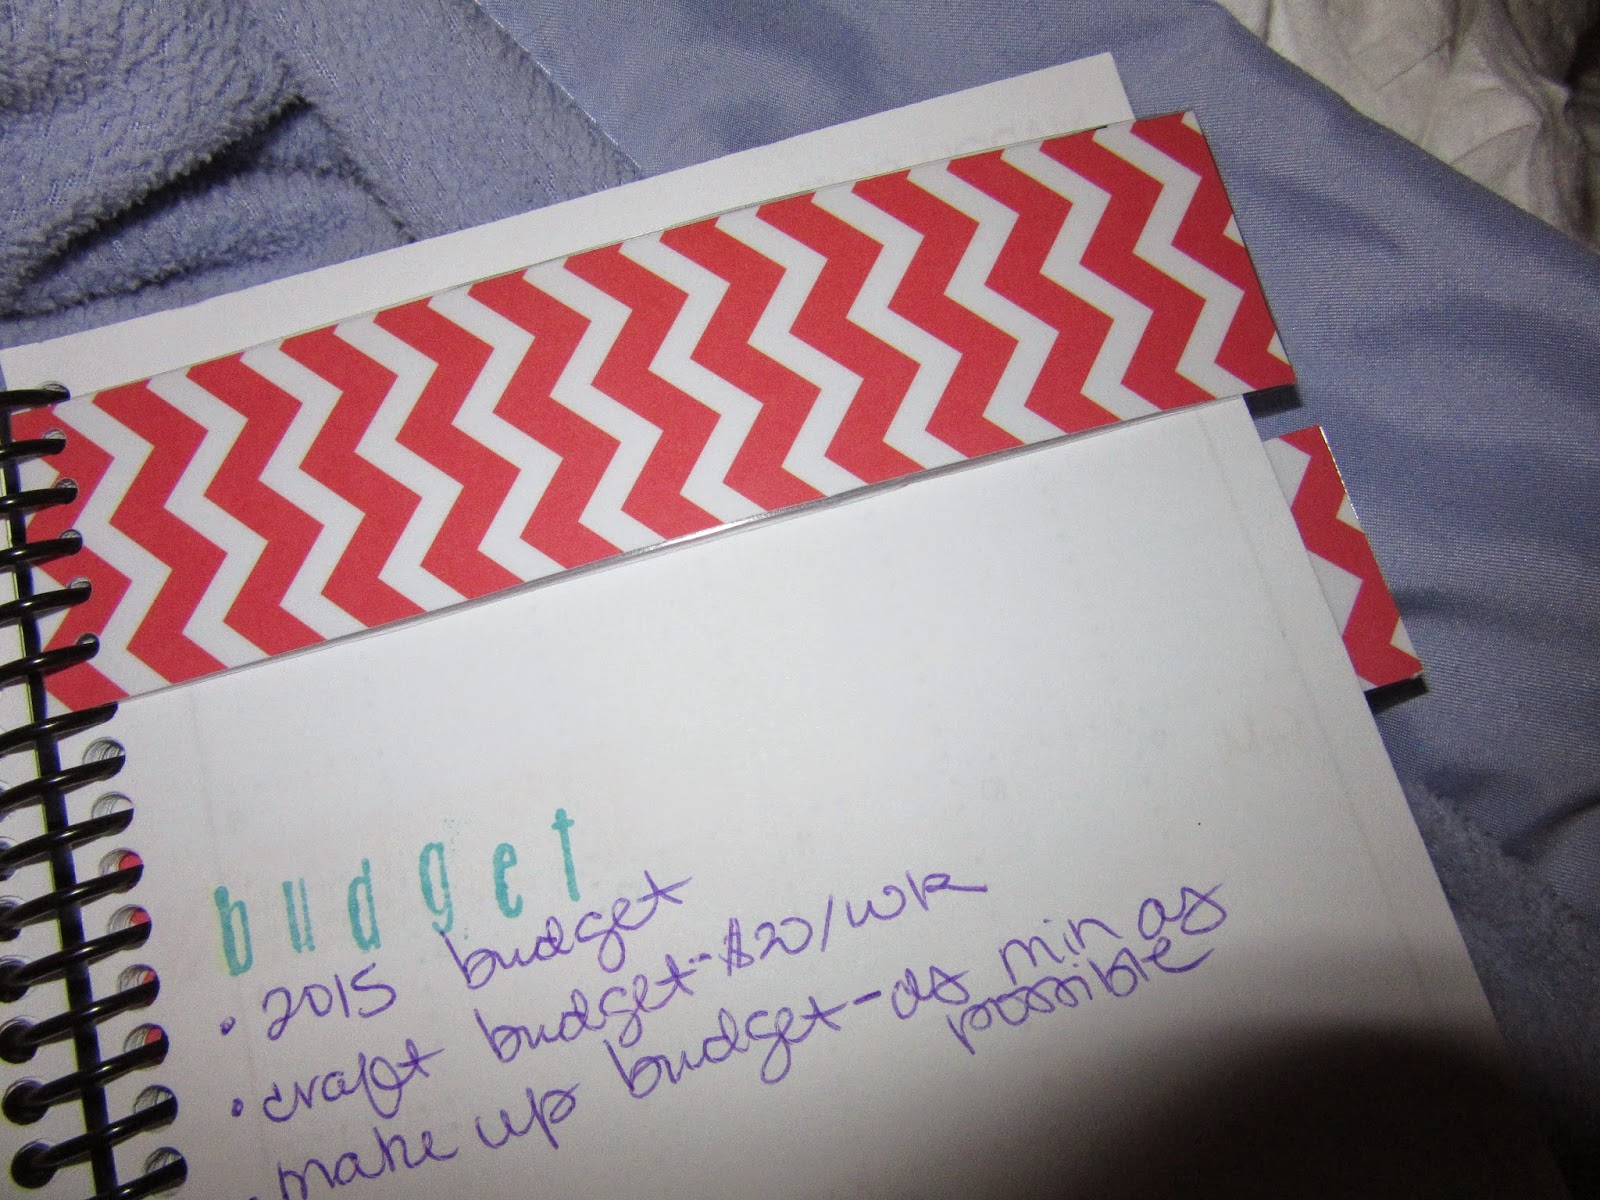 budget
• 2015 budget
• craft budget - $20/wk
• make up budget - as min as
possible